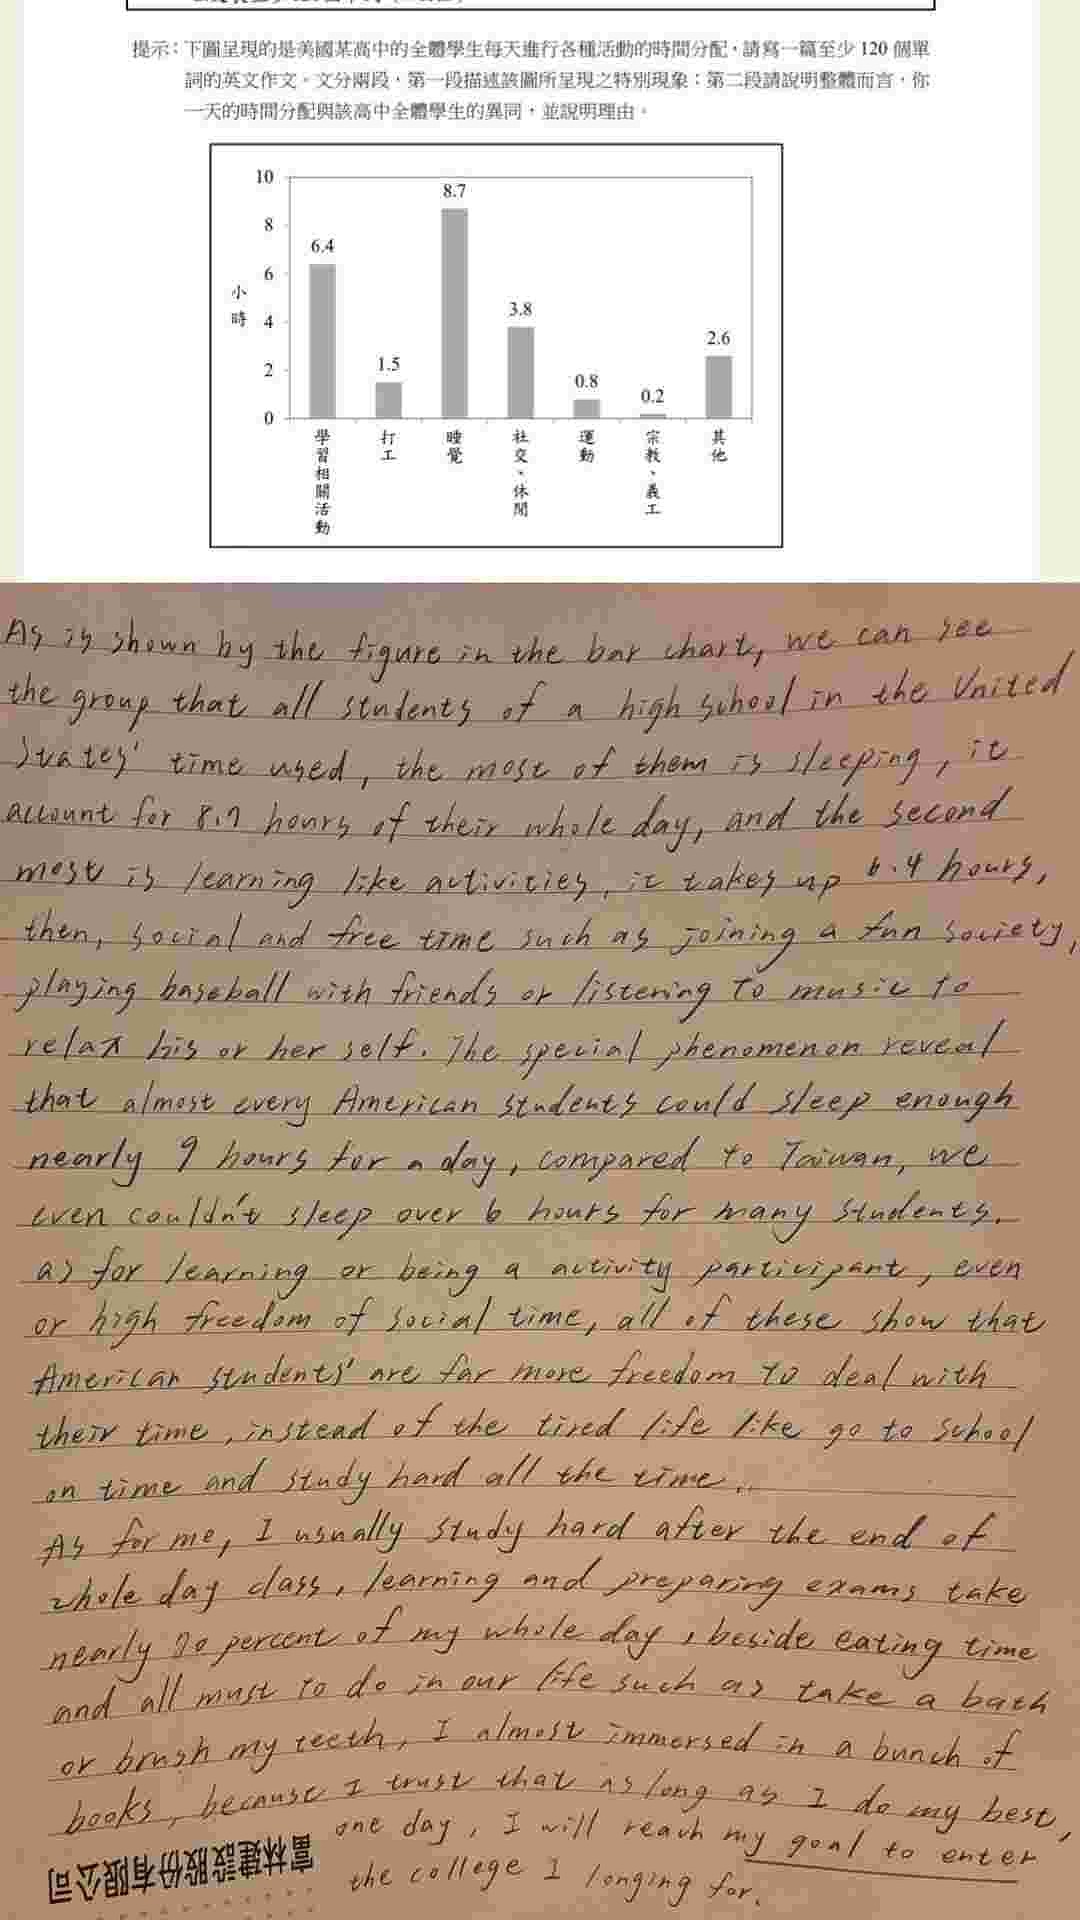 提示：下圖呈現的是美國某高中的全體學生每天進行各種活動的時間分配，請寫一篇至少 120 個單
詞的英文作文。文分兩段，第一段描述該圖所呈現之特別現象；第二段請說明整體而言，你
一天的時間分配與該高中全體學生的異同，並說明理由。
10
8
6
4
2
0
小時
6.4
1.5
8.7
3.8
0.8
0.2
2.6
學習相關活動
打工
睡覺
社交、休閒
運動
宗教、義工
其他
As is shown by the figure in the bar chart, we can see
the group that all students of a high school in the United
States' time used, the most of them is sleeping, it
account for 8.7 hours of their whole day, and the second
most is learning like activities, it takes up 6.4 hours,
then, social and free time such as joining a fun society,
playing baseball with friends or listening to music to
relax his or her self. The special phenomenon reveal
that almost every American students could sleep enough
nearly 9 hours for a day, compared to Taiwan, we
even couldn't sleep over 6 hours for many students.
as for learning or being a activity participant, even
or high freedom of social time, all of these show that
American students' are far more freedom to deal with
their time, instead of the tired life like go to school
on time and study hard all the time.
As for me, I usually study hard after the end of
whole day class, learning and preparing exams take
nearly 70 percent of my whole day, beside eating time
and all must to do in our life such as take a bath
or brush my teeth, I almost immersed in a bunch of
books, because I trust that as long as I do my best,
one day, I will reach my goal to enter
the college I longing for.
富林建設股份有限公司